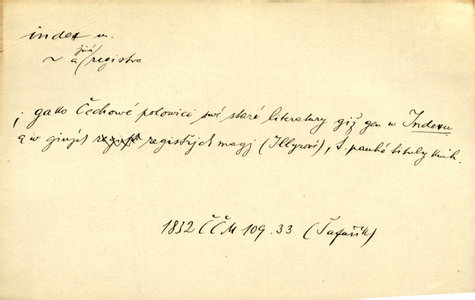 index m.
~ a jiná registra
; gako Čechowé polowici swé staré literatury giž gen w Indexu
a w giných registřjch magj (Illyrowé), t. pauhé tituly knih.
1832 ČČM 109. 33 (Šafařík)